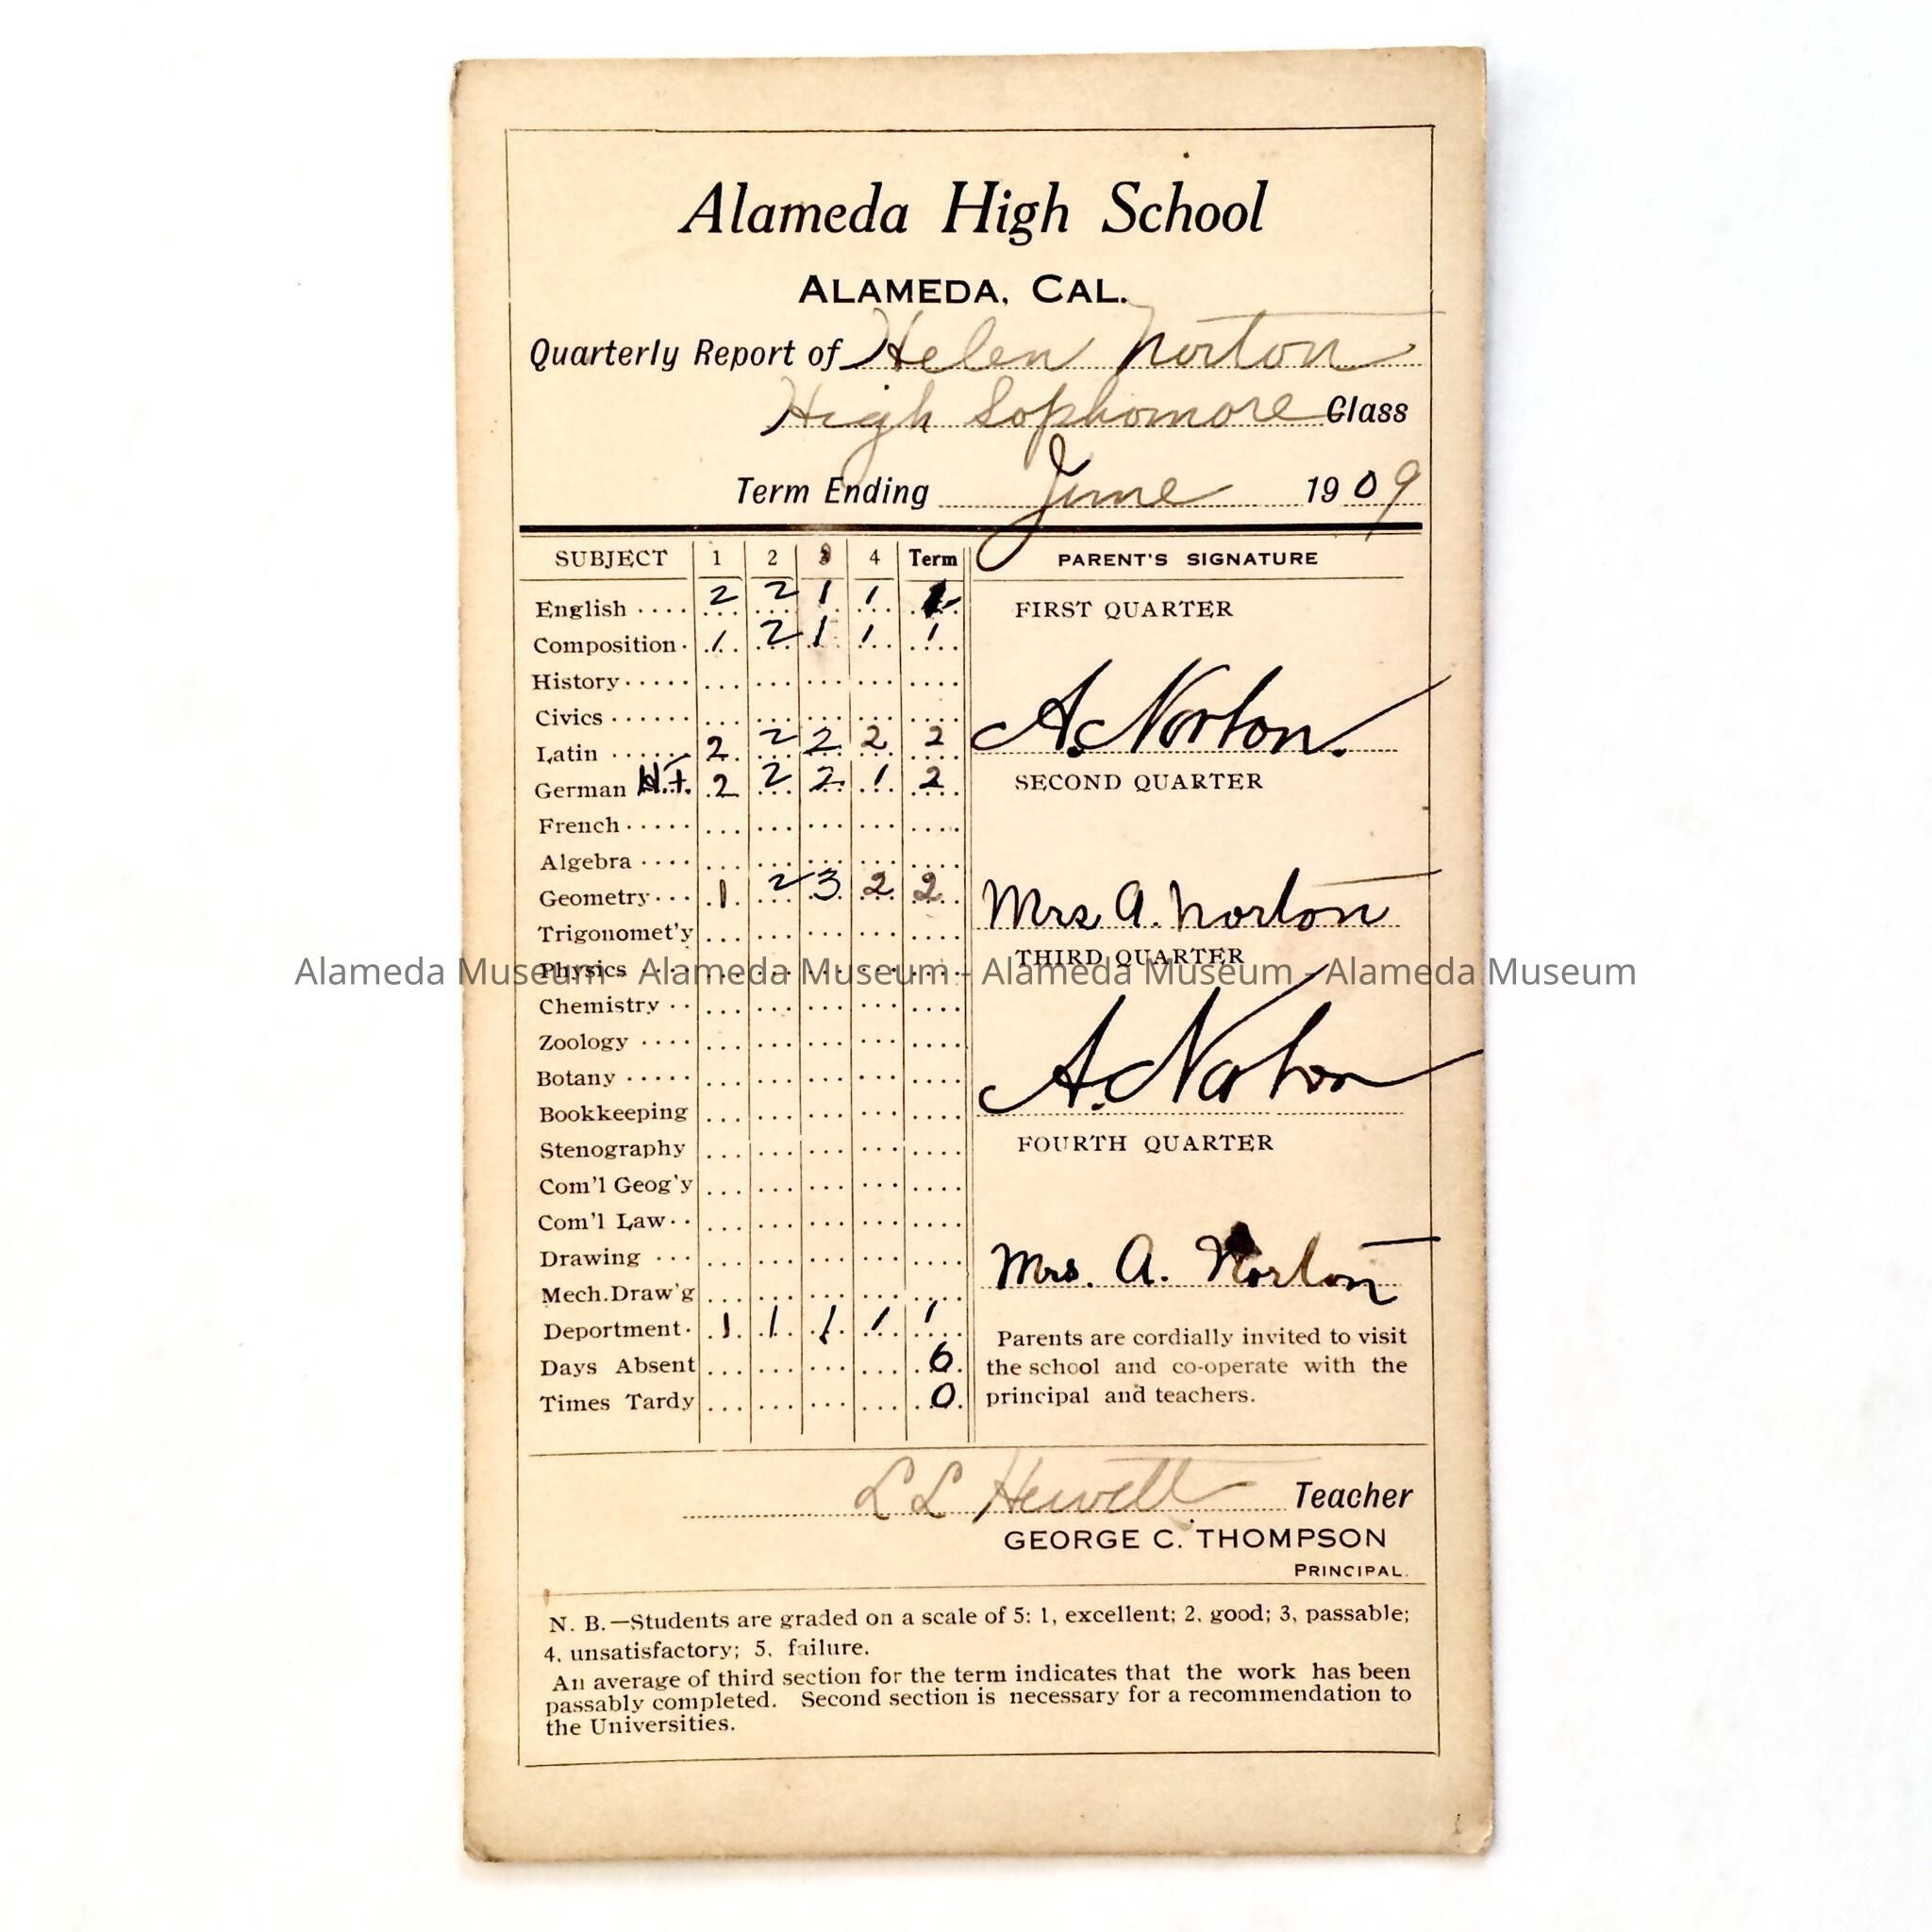 Alameda High School
ALAMEDA, CAL.
Quarterly Report of Helen Norton
High Sophomore Class
Term Ending June 1909
SUBJECT 1 2 3 4 Term
PARENT'S SIGNATURE
English .... 2 2 1 1 1
FIRST QUARTER
Composition . 1 2 1 1 1
History .....
Civics ......
Latin ...... 2 2 2 2 2
A. Norton.
German 2 2 2 1 2
SECOND QUARTER
French .....
Algebra ....
Geometry ... 1 2 3 2 2
Mrs A. Norton
Trigonomet'y
THIRD QUARTER
Physics ...
Alameda Museum - Alameda Museum - Alameda Museum - Alameda Museum
Chemistry ..
Zoology ....
Botany .....
Bookkeeping
A. Norton
Stenography
FOURTH QUARTER
Com'l Geog'y
Com'l Law ..
Drawing ...
Mech.Draw'g
Mrs. A. Norton
Deportment . 1 1 1 1 1
Days Absent 6
Times Tardy 0
Parents are cordially invited to visit
the school and co-operate with the
principal and teachers.
L L Hewett Teacher
GEORGE C. THOMPSON
PRINCIPAL.
N. B.—Students are graded on a scale of 5: 1, excellent; 2, good; 3, passable;
4, unsatisfactory; 5, failure.
An average of third section for the term indicates that the work has been
passably completed. Second section is necessary for a recommendation to
the Universities.